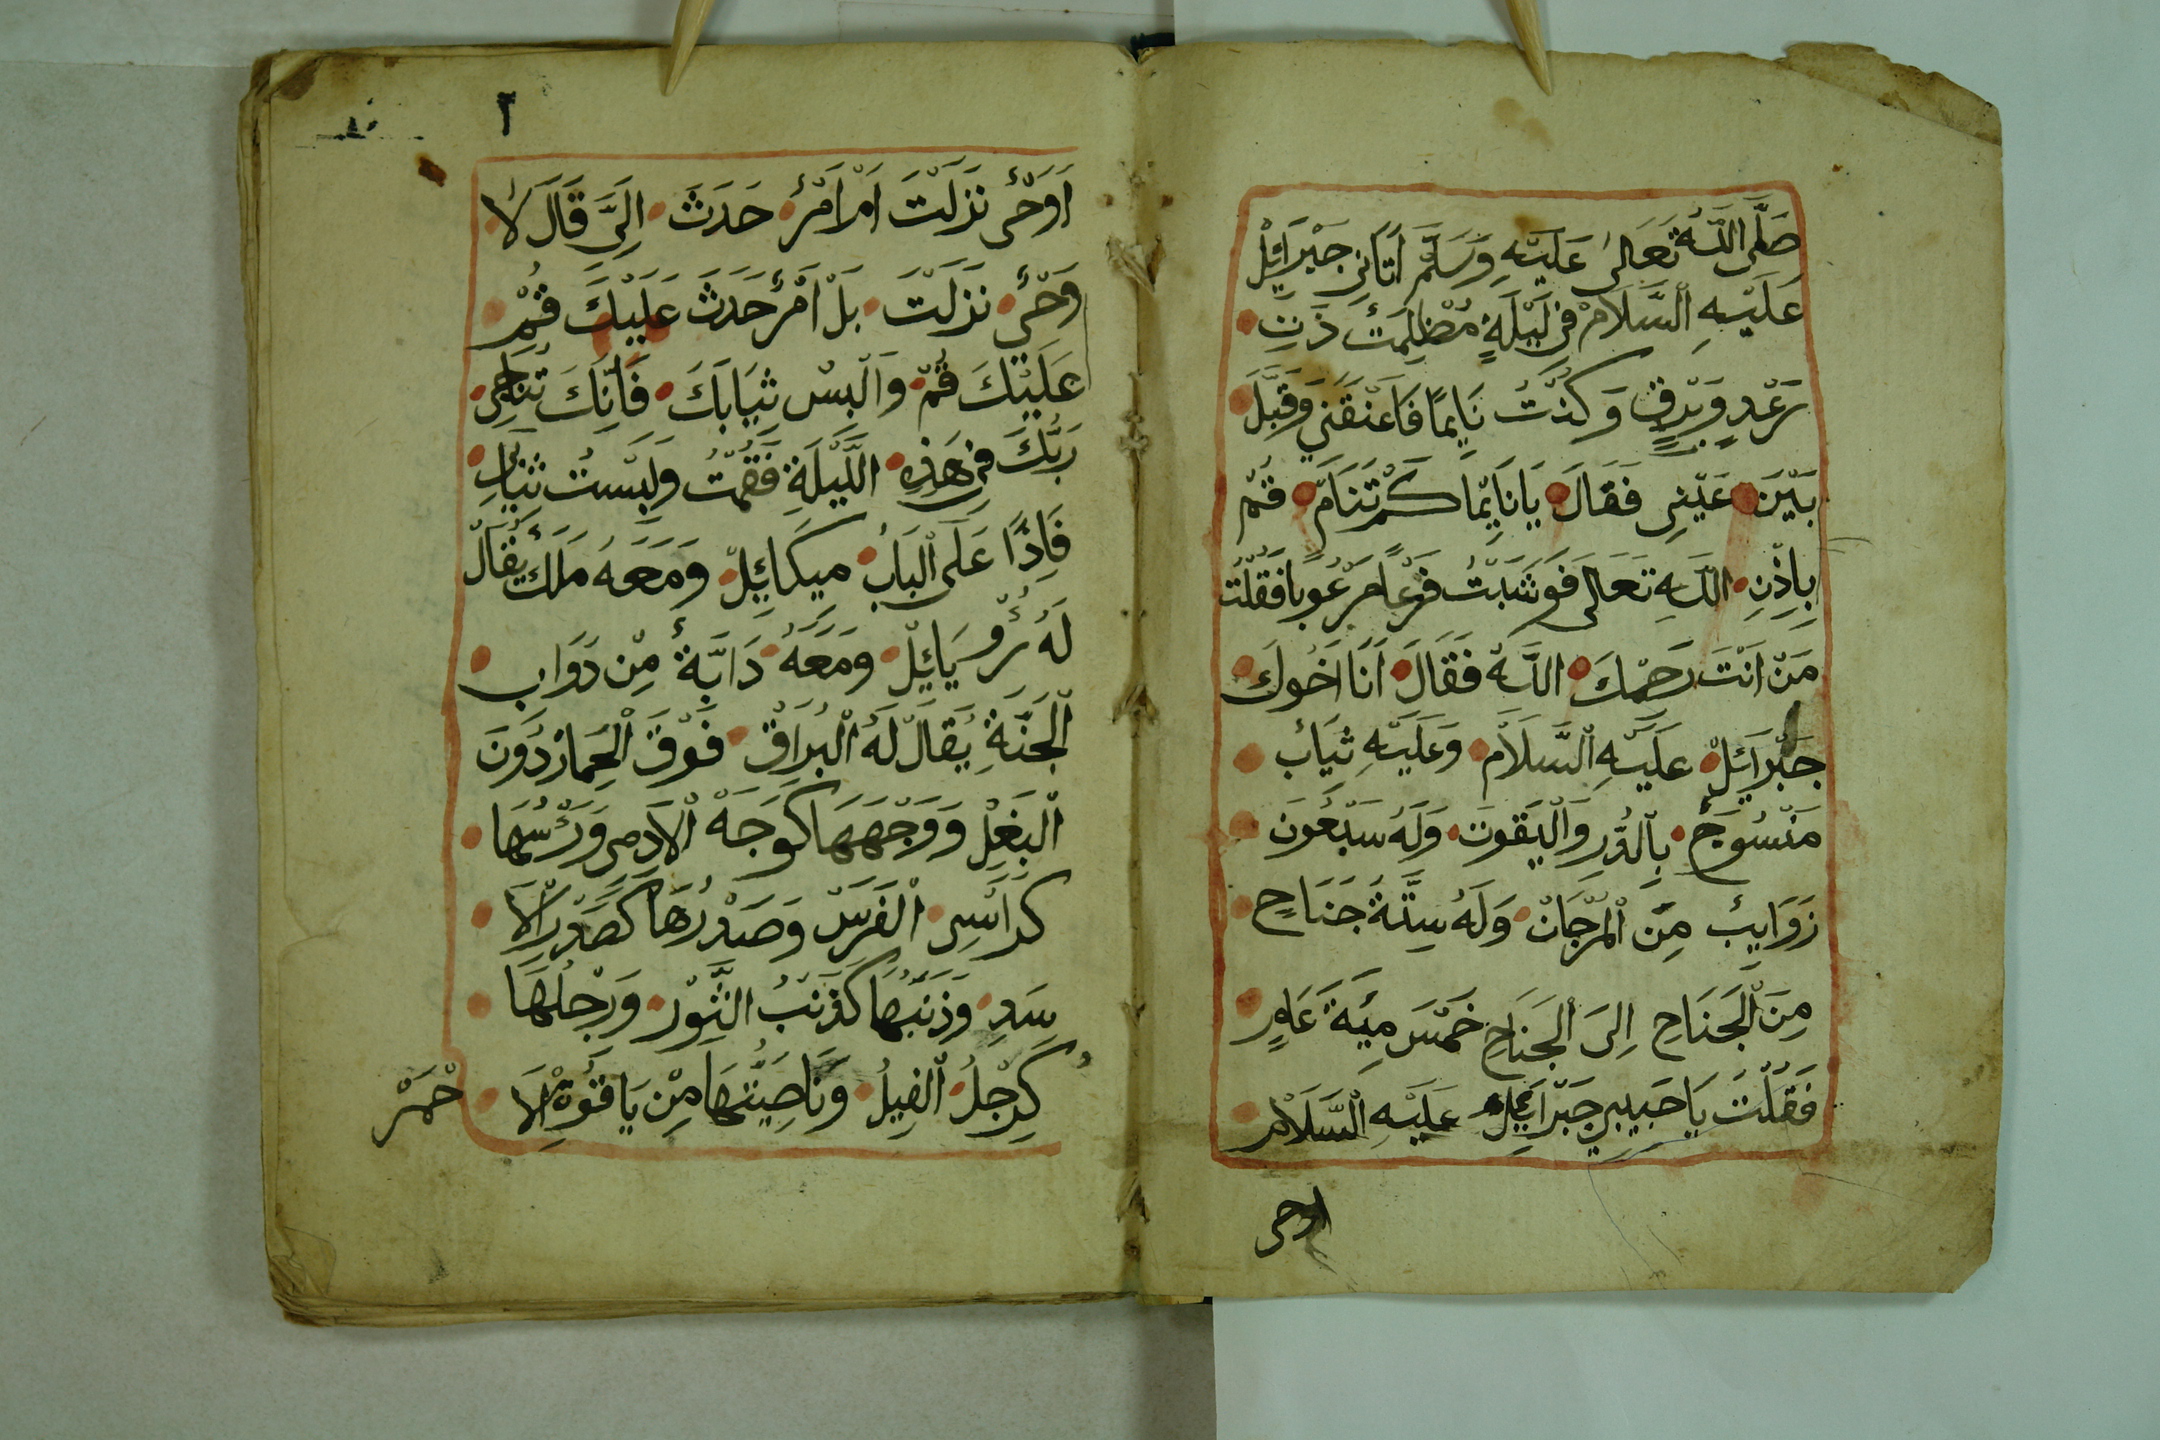 صَلَّى اللَّهُ تَعَالَى عَلَيْهِ وَسَلَّمْ اَتَانِي جَبْرَائِلْ
عَلَيْهِ السَّلَامْ فِي لَيْلَةٍ مُظْلِمَتٍ ذَتِ
رَعْدٍ وَبَرْقٍ وَكُنْتُ نَايِمًا فَاعْنَقَنِي وَقَبَّلَ
بَيْنَ عَيْنِي فَقَالَ يَا نَايِمًا كَمْ تَنَامْ قُمْ
بِاِذْنِ اللَّهِ تَعَالَى فَوَشَبْتُ فَزِعًا مَرْعُوبًا فَقُلْتُ
مَنْ اَنْتَ رَحِمَكَ اللَّهُ فَقَالَ اَنَا اَخُوكَ
جَبْرَائِلْ عَلَيْهِ السَّلَامْ وَعَلَيْهِ ثِيَابٌ
مَنْسُوجٌ بِالدُّرِ وَالْيَقُوتَ وَلَهُ سَبْعُونَ
زَوَايِبٌ مِنَ الْمَرْجَانْ وَلَهُ سِتَّةُ جَنَاحٍ
مِنَ الْجَنَاحِ اِلَى الْجَنَاحِ خَمْسَ مِيَةَ عَامٍ
فَقُلْتُ يَا حَبِيبِي جَبْرَائِلْ عَلَيْهِ السَّلَامْ
اوحى
٢
اَوَحْىٌ نَزَلَتْ اَمْ اَمْرٌ حَدَثَ اِلَيَّ قَالَ لَا
وَحْىٌ نَزَلَتْ بَلْ اَمْرٌ حَدَثَ عَلَيْكَ قُمْ
عَلَيْكَ قُمْ وَالْبِسْ ثِيَابَكَ فَاِنَّكَ تُنَاجِى
رَبَّكَ فِي هَذِهِ اللَّيْلَةِ فَقُمْتُ وَلَبِسْتُ ثِيَابِي
فَاِذًا عَلَى الْبَابُ مِيكَايِلْ وَمَعَهُ مَلَكٌ يُقَالْ
لَهُ رُوْيَايِلْ وَمَعَهُ دَابَّةٌ مِنْ دَوَابِ
الْجَنَّةِ يُقَالْ لَهُ الْبُرَاقْ فَوْقَ الْحِمَارْ دُونَ
الْبَغِلْ وَوَجْهَهَا كَوَجَهْ الْاَدَمِى وَرَئْسُهَا
كَرَاْسِى الْفَرَسْ وَصَدْرُهَا كَصَدْرِ الْاَ
سَدِ وَذَنَبُهَا كَذَنَبُ الثَّوْرْ وَرِجْلُهَا
كَرِجْلُ الْفِيلُ وَنَاصِيَتُهَا مِنْ يَاقُوتِهْ الَا
حْمَرْ